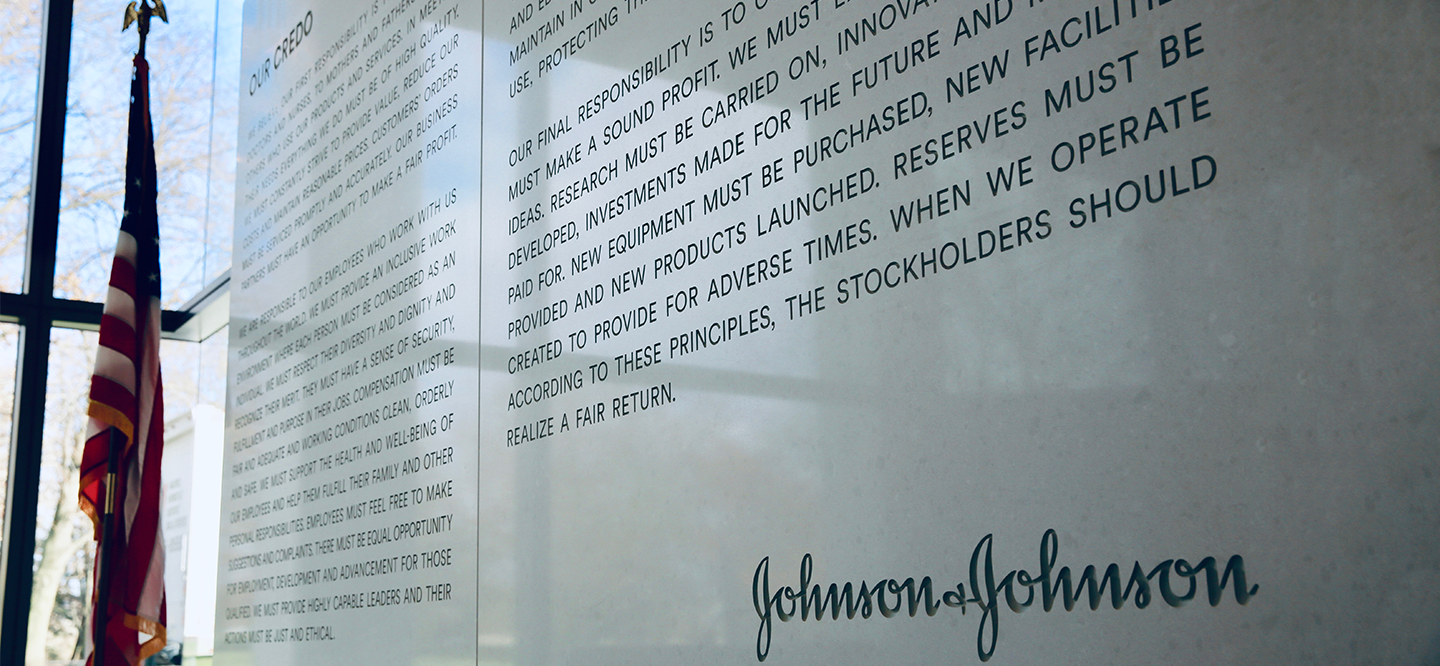 OUR CREDO
WE BELIEVE OUR FIRST RESPONSIBILITY IS
DOCTORS AND NURSES, TO MOTHERS AND FATHERS
OTHERS WHO USE OUR PRODUCTS AND SERVICES. IN
THEIR NEEDS EVERYTHING WE DO MUST BE OF HIGH QUALITY.
WE MUST CONSTANTLY STRIVE TO PROVIDE VALUE, REDUCE OUR
COSTS AND MAINTAIN REASONABLE PRICES. CUSTOMERS' ORDERS
MUST BE SERVICED PROMPTLY AND ACCURATELY. OUR BUSINESS
PARTNERS MUST HAVE AN OPPORTUNITY TO MAKE A FAIR PROFIT.
WE ARE RESPONSIBLE TO OUR EMPLOYEES WHO WORK WITH US
THROUGHOUT THE WORLD. WE MUST PROVIDE AN INCLUSIVE WORK
ENVIRONMENT WHERE EACH PERSON MUST BE CONSIDERED AS AN
INDIVIDUAL. WE MUST RESPECT THEIR DIVERSITY AND DIGNITY AND
RECOGNIZE THEIR MERIT. THEY MUST HAVE A SENSE OF SECURITY,
FULFILLMENT AND PURPOSE IN THEIR JOBS. COMPENSATION MUST BE
FAIR AND ADEQUATE AND WORKING CONDITIONS CLEAN, ORDERLY
AND SAFE. WE MUST SUPPORT THE HEALTH AND WELL-BEING OF
OUR EMPLOYEES AND HELP THEM FULFILL THEIR FAMILY AND OTHER
PERSONAL RESPONSIBILITIES. EMPLOYEES MUST FEEL FREE TO MAKE
SUGGESTIONS AND COMPLAINTS. THERE MUST BE EQUAL OPPORTUNITY
FOR EMPLOYMENT, DEVELOPMENT AND ADVANCEMENT FOR THOSE
QUALIFIED. WE MUST PROVIDE HIGHLY CAPABLE LEADERS AND THEIR
ACTIONS MUST BE JUST AND ETHICAL.
AND
MAINTAIN IN
USE, PROTECTING
OUR FINAL RESPONSIBILITY IS TO
MUST MAKE A SOUND PROFIT. WE MUST
IDEAS. RESEARCH MUST BE CARRIED ON,
DEVELOPED, INVESTMENTS MADE FOR THE FUTURE AND
PAID FOR. NEW EQUIPMENT MUST BE PURCHASED, NEW FACILITIES
PROVIDED AND NEW PRODUCTS LAUNCHED. RESERVES MUST BE
CREATED TO PROVIDE FOR ADVERSE TIMES. WHEN WE OPERATE
ACCORDING TO THESE PRINCIPLES, THE STOCKHOLDERS SHOULD
REALIZE A FAIR RETURN.
Johnson & Johnson